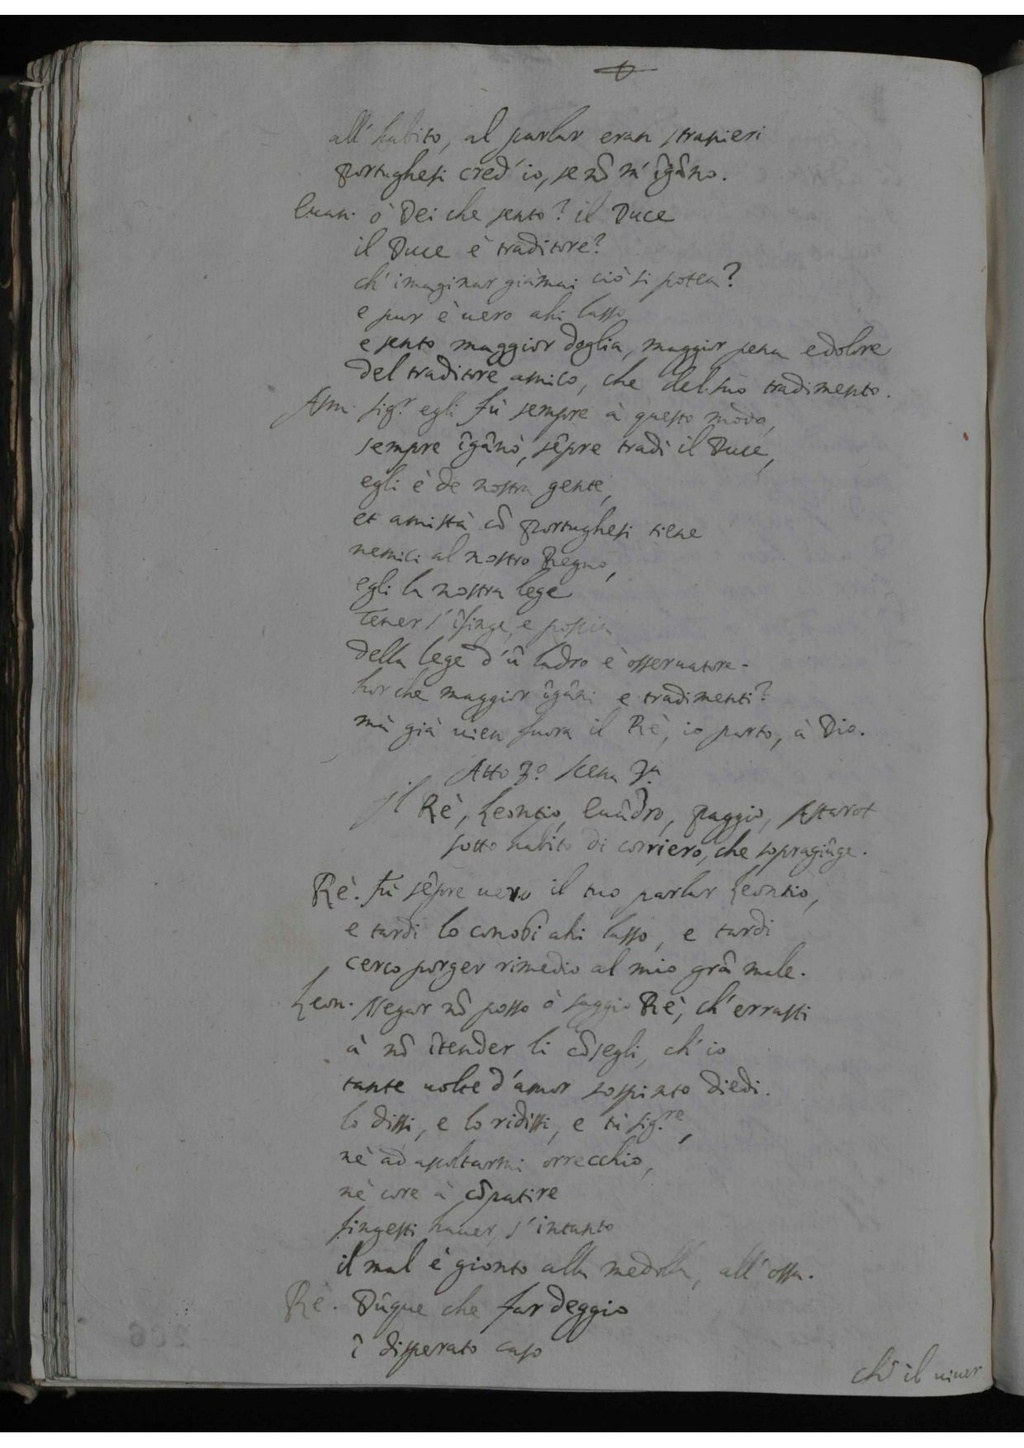 all' habito, al parlar eran stranieri
Portughesi cred' io, se nõ m' ĩgãno.
Euan. ò Dei che sento? il Duce
il Duce è traditore?
ch' imaginar giàmai ciò si potea?
e pur è uero ahi lasso
e sento maggior doglia, maggior pena e dolore
del traditore amico, che del suo tradimento.
Asm. sigr. egli fù sempre à questo modo,
sempre ĩgãnò, sẽpre tradì il Duce,
egli è de nostra gente,
et amistà cõ Portughesi tiene
nemici al nostro Regno,
egli la nostra lege
tener s' ĩfinge, e poscia
della lege d' ũ ladro è osseruatore.
hor che maggior ĩgãni e tradimenti?
mà già uien fuora il Rè, io parto, à Dio.
Atto 3º. scena 3a.
Il Rè, Leontio, Euãdro, Paggio, Astarot
sotto habito di corriero, che sopragiũge.
Rè. Fù sẽpre uero il tuo parlar Leontio,
e tardi lo conobi ahi lasso, e tardi
cerco porger rimedio al mio grã male.
Leon. Negar nõ posso ò saggio Rè, ch' errasti
à nõ ĩtender li cõsegli, ch' io
tante uolte d' amor sospinto diedi.
lo dissi, e lo ridissi, e tù sig.re,
nè ad ascoltarmi orrecchio,
nè core à cõpatire
fingesti hauer, s' intanto
il mal è gionto alla medolla, all' ossa.
Rè. Dũque che far deggio
ĩ disperato caso
ch' il uiuer